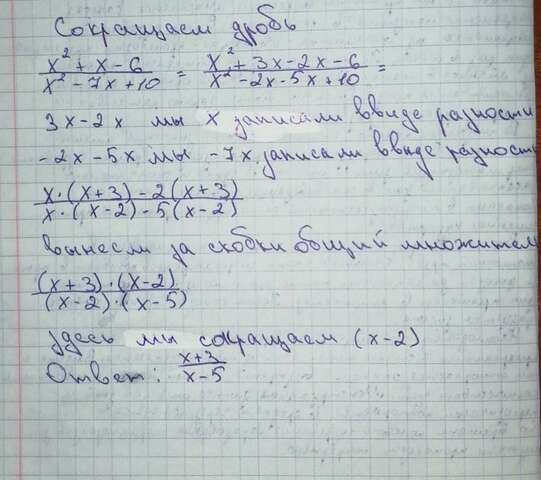 Сокращаем дробь
x² + x - 6 / x² - 7x + 10 = x² + 3x - 2x - 6 / x² - 2x - 5x + 10 =
3x - 2x мы x записали ввиде разности
- 2x - 5x мы - 7x записали ввиде разност
x · (x + 3) - 2 (x + 3) / x · (x - 2) - 5 (x - 2)
вынесли за скобки общий множител
(x + 3) · (x - 2) / (x - 2) · (x - 5)
здесь мы сокращаем (x - 2)
Ответ: x + 3 / x - 5